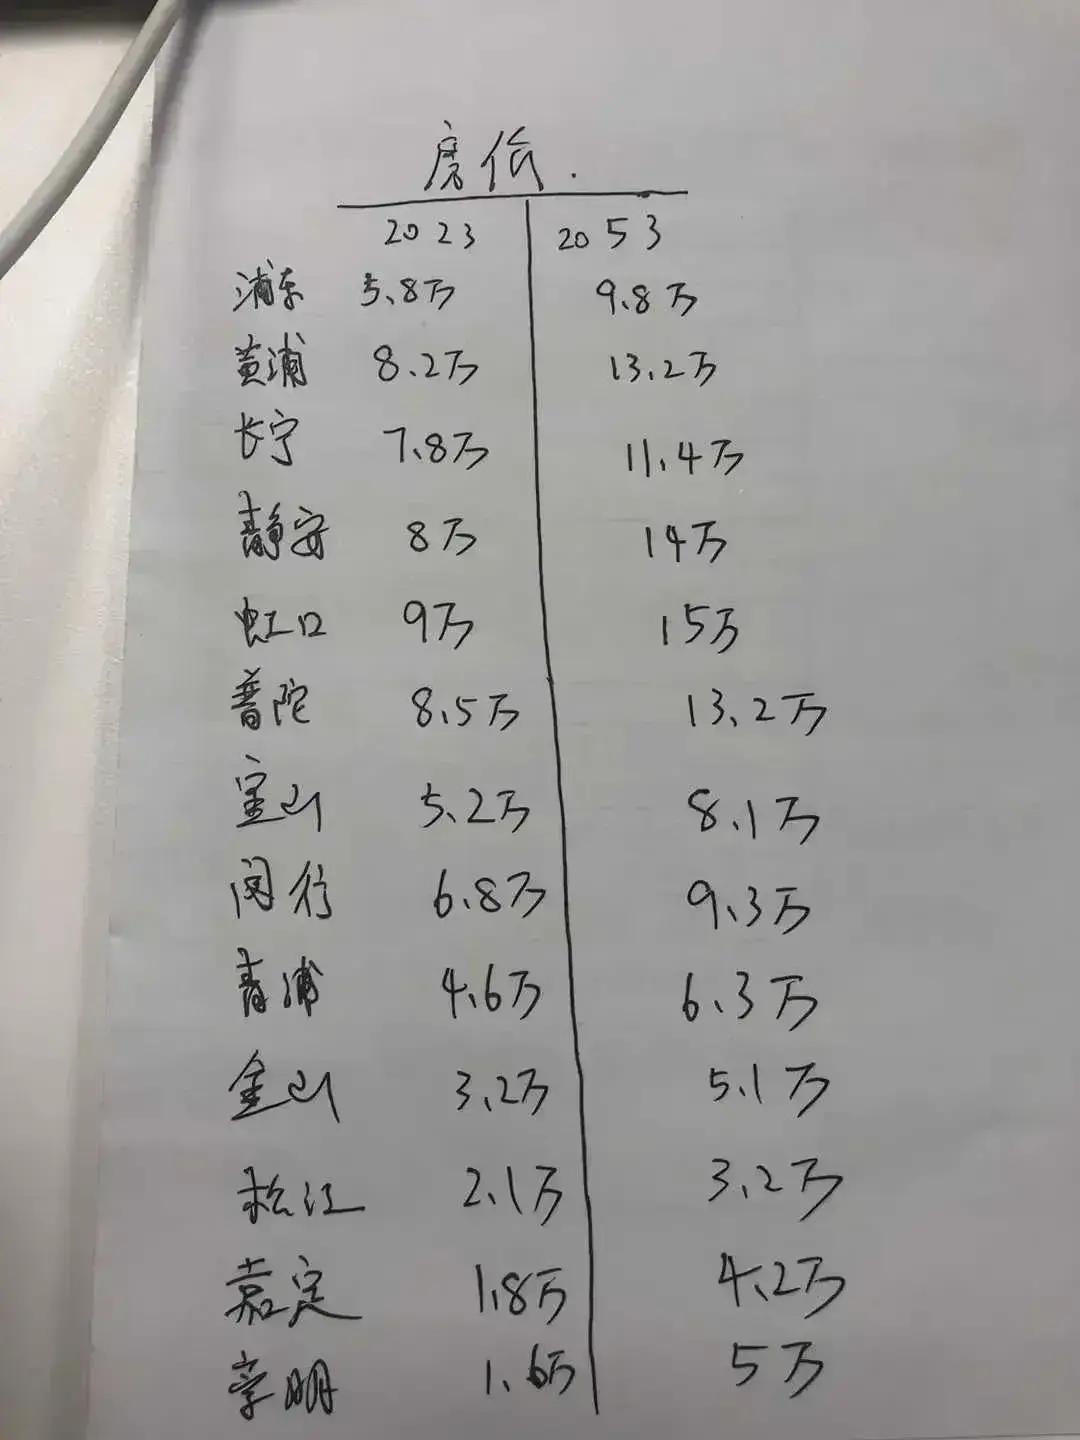 房价.
2023 2053
浦东 5.8万 9.8万
黄浦 8.2万 13.2万
长宁 7.8万 11.4万
静安 8万 14万
虹口 9万 15万
普陀 8.5万 13.2万
宝山 5.2万 8.1万
闵行 6.8万 9.3万
青浦 4.6万 6.3万
金山 3.2万 5.1万
松江 2.1万 3.2万
嘉定 1.8万 4.2万
崇明 1.6万 5万